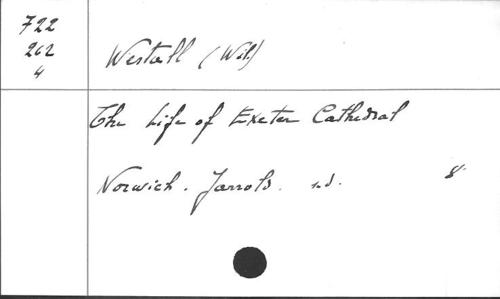 722
262
4
Westall (Wilf)
The Life of Exeter Cathedral
Norwich. Jarrold. n.d. 8°